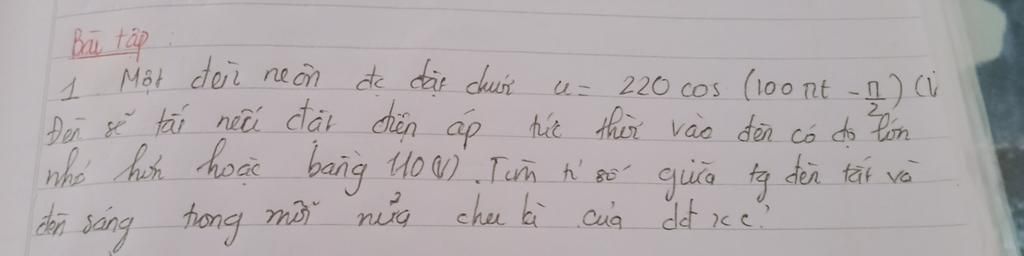 Bài tập:
1. Một đèn neôn đc đặt dưới u = 220 cos (100πt - π/2) (V
Đèn sẽ tắt nếu đặt điện áp tức thời vào đèn có độ lớn
nhỏ hơn hoặc bằng 110 (V). Tìm tỉ số giữa tg đèn tắt và
đèn sáng trong mỗi nửa chu kì của dđ xc?